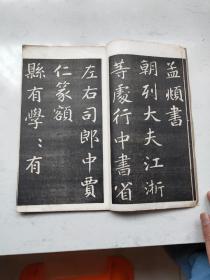 孟頫書
朝列大夫江淛
等處行中書省
左右司郎中賈
仁篆額
縣有學〻有